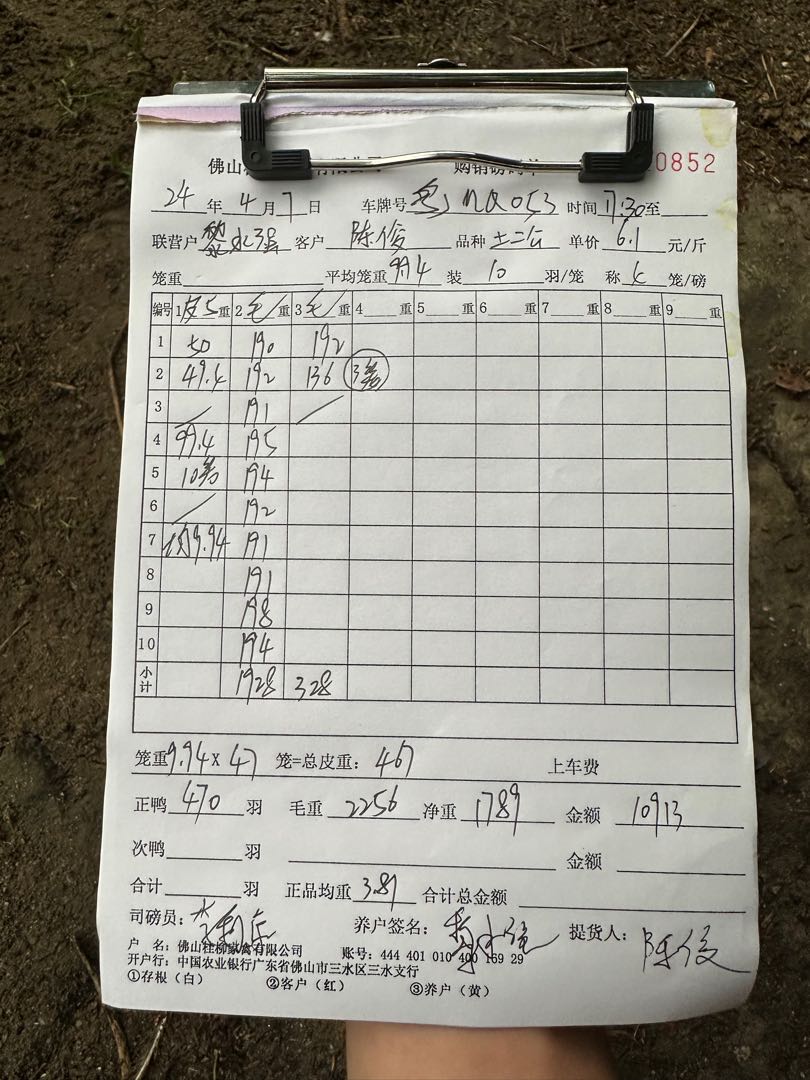 佛山 购销磅码单 0852
24年 4月 7日 车牌号 粤 NQ053 时间 17:30至
联营户 黎永强 客户 陈俊 品种 土二公 单价 6.1 元/斤
笼重 平均笼重 99.4 装 10 羽/笼 称 4 笼/磅
编号 1皮5重 2毛/重 3毛/重 4 重 5 重 6 重 7 重 8 重 9 重
1 50 190 192
2 49.4 192 136 3笼
3 / 191 /
4 99.4 195
5 10笼 194
6 / 192
7 均9.94 191
8 191
9 198
10 194
小计 1928 328
笼重9.94 X 47 笼=总皮重: 467 上车费
正鸭 470 羽 毛重 2256 净重 1789 金额 10913
次鸭 羽 金额
合计 羽 正品均重 3.81 合计总金额
司磅员: 养户签名: 提货人: 陈俊
户 名: 佛山桂柳家禽有限公司 账号: 444 401 010 400 169 29
开户行: 中国农业银行广东省佛山市三水区三水支行
①存根(白) ②客户(红) ③养户(黄)